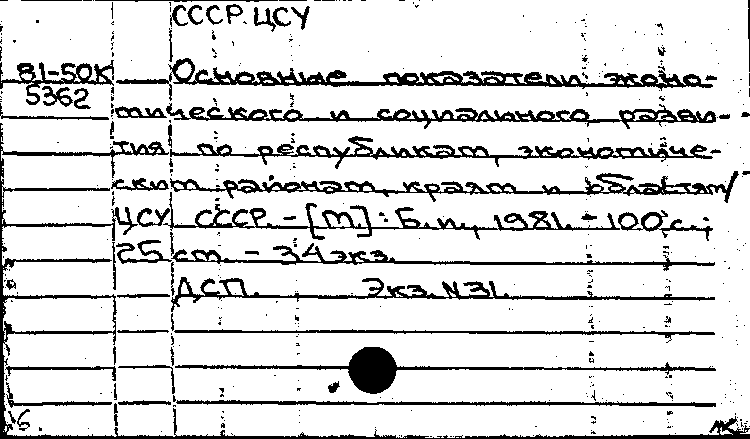 СССР. ЦСУ
81-50к Основные показатели эконо-
5362
мического и социального разви-
тия по республикам, экономиче-
ским районам, краям и областям/
ЦСУ СССР. - [М.] : Б. и., 1981. - 100 с.;
25 см. - 34 экз.
ДСП. Экз. N31.